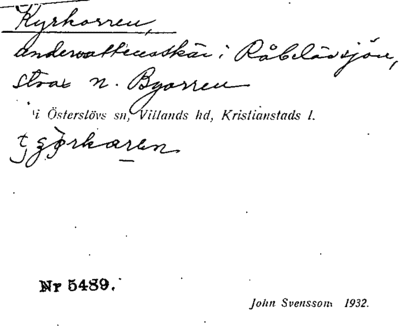 Kyrkorren,
undervattensskär i Råbelövsjön,
strax n. Byorren
i Österslövs sn, Villands hd, Kristianstads l.
Nr 5489.
John Svensson 1932.